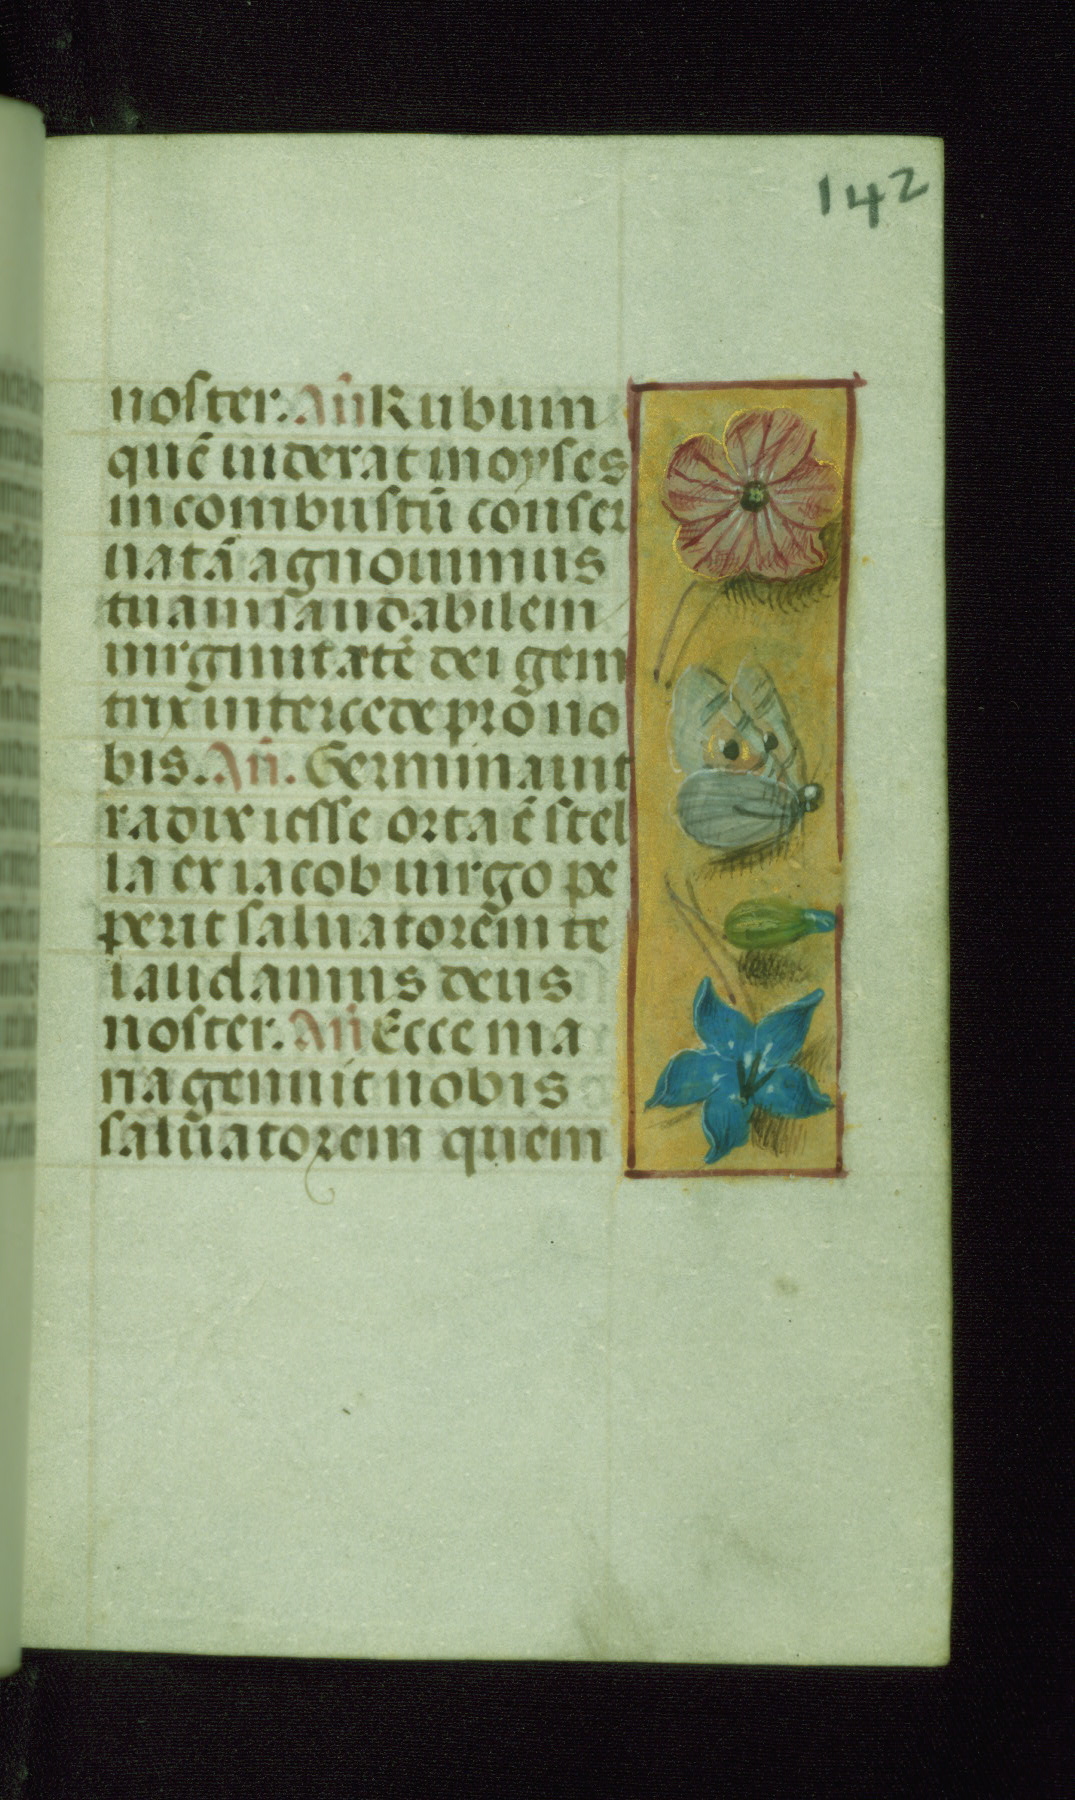 142
noster. Añ Rubum
quē uiderat moyses
incombustū conser
uatā agnouimus
tuam laudabilem
uirginitatē dei geni
trix intercede pro no
bis. Añ. Germinauit
radix iesse orta ē stel
la ex iacob uirgo pe
perit saluatorem te
laudamus deus
noster. Añ Ecce ma
ria genuit nobis
saluatorem quem